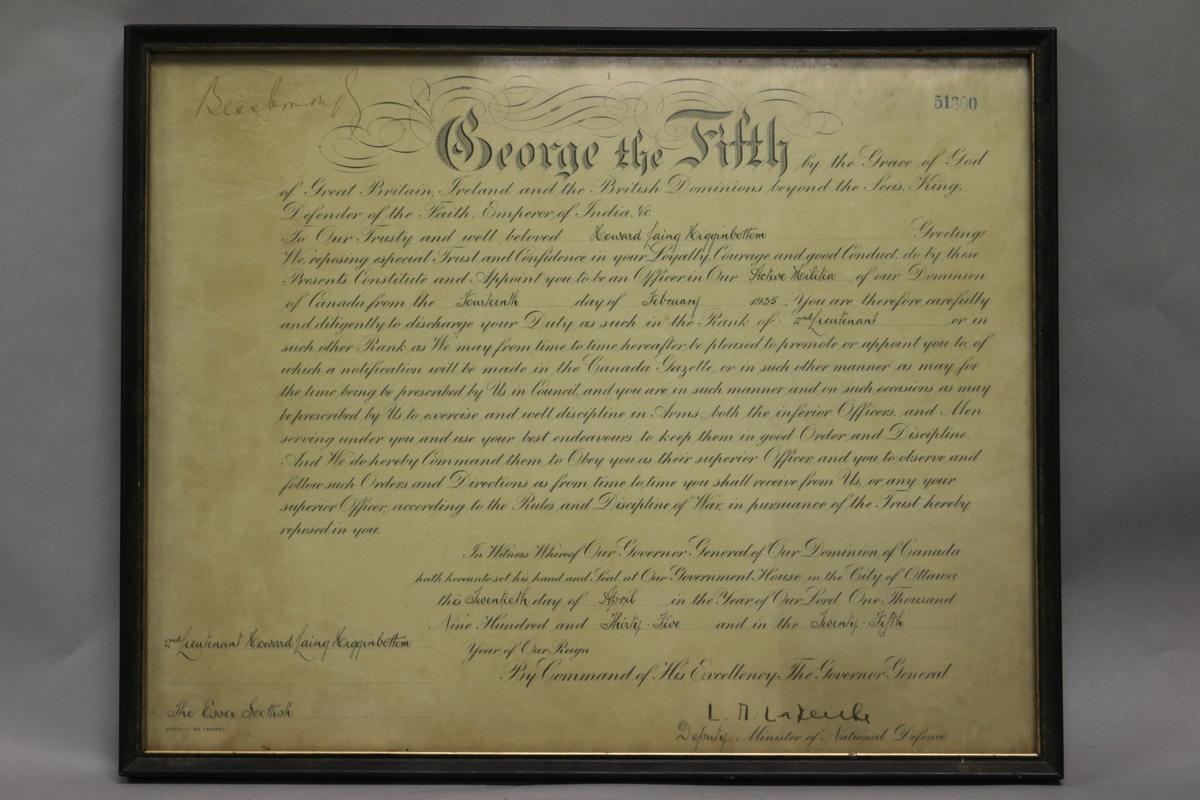 Bessborough
51300
George the Fifth by the Grace of God
of Great Britain, Ireland and the British Dominions beyond the Seas, King,
Defender of the Faith, Emperor of India, &c
To Our Trusty and well beloved Howard Laing Higginbottom Greeting:
We, reposing especial Trust and Confidence in your Loyalty, Courage and good Conduct, do by these
Presents Constitute and Appoint you to be an Officer in Our Active Militia of our Dominion
of Canada from the Fourteenth day of February 1935. You are therefore carefully
and diligently to discharge your Duty as such in the Rank of 2nd Lieutenant or in
such other Rank as We may from time to time hereafter be pleased to promote or appoint you to, of
which a notification will be made in the Canada Gazette, or in such other manner as may for
the time being be prescribed by Us in Council, and you are in such manner and on such occasions as may
be prescribed by Us to exercise and well discipline in Arms, both the inferior Officers, and Men
serving under you and use your best endeavours to keep them in good Order and Discipline.
And We do hereby Command them to Obey you as their superior Officer, and you to observe and
follow such Orders and Directions as from time to time you shall receive from Us, or any your
superior Officer, according to the Rules and Discipline of War, in pursuance of the Trust hereby
reposed in you.
In Witness Whereof Our Governor General of Our Dominion of Canada
hath hereunto set his hand and Seal at Our Government House in the City of Ottawa
this Twentieth day of April in the Year of Our Lord One Thousand
Nine Hundred and Thirty-Five and in the Twenty-Fifth
Year of Our Reign
By Command of His Excellency The Governor General
2nd Lieutenant Howard Laing Higginbottom
The Essex Scottish
Deputy Minister of National Defence